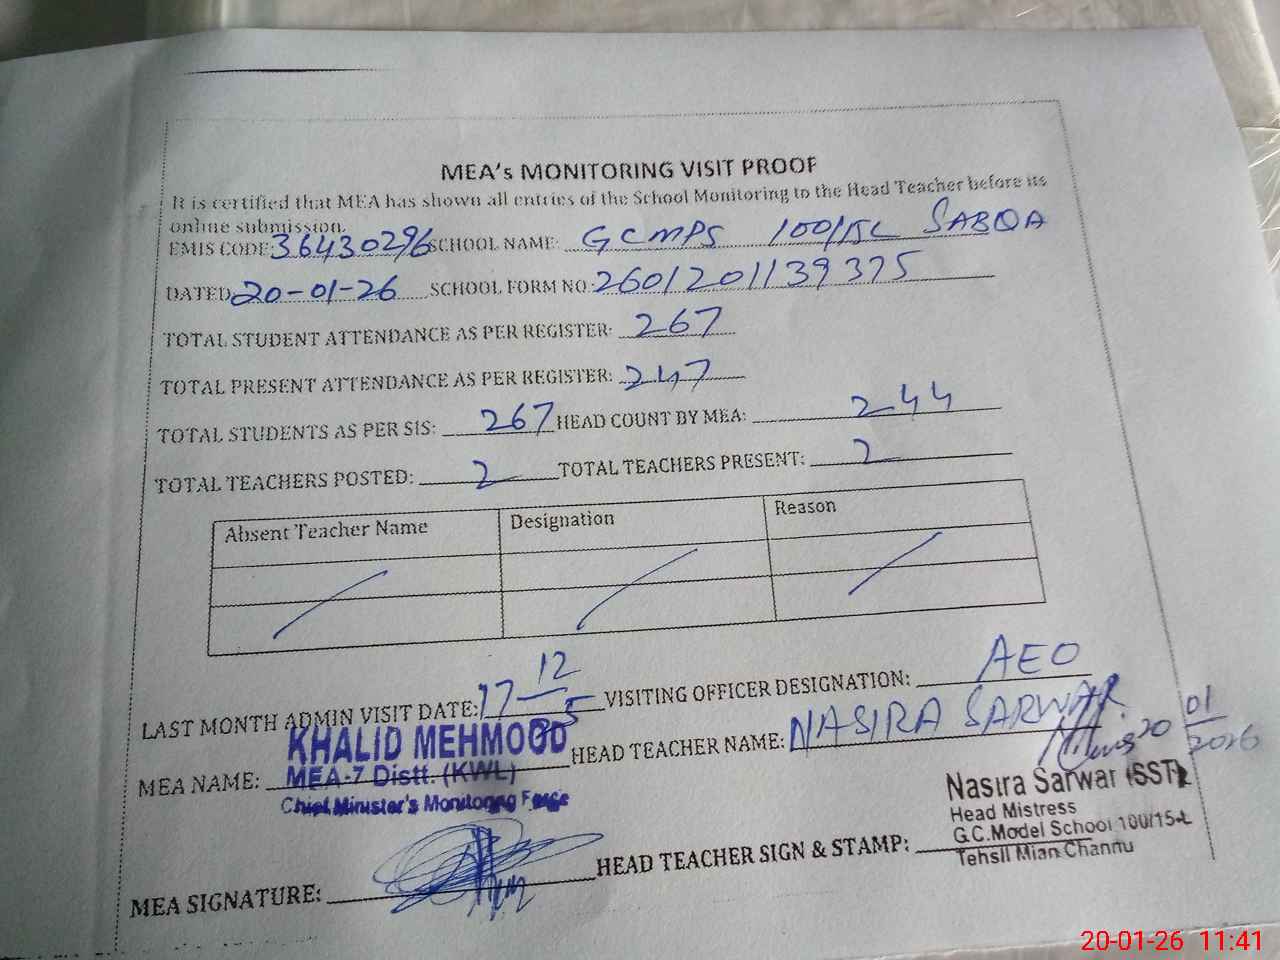 MEA's MONITORING VISIT PROOF
It is certified that MEA has shown all entries of the School Monitoring to the Head Teacher before its
online submission.
EMIS CODE: 36430296 SCHOOL NAME: GCMPS 100/15L SABQA
DATED 20-01-26 SCHOOL FORM NO: 2601201139375
TOTAL STUDENT ATTENDANCE AS PER REGISTER: 267
TOTAL PRESENT ATTENDANCE AS PER REGISTER: 247
TOTAL STUDENTS AS PER SIS: 267 HEAD COUNT BY MEA: 244
TOTAL TEACHERS POSTED: 2 TOTAL TEACHERS PRESENT: 2
Absent Teacher Name Designation Reason
LAST MONTH ADMIN VISIT DATE: 17-12 VISITING OFFICER DESIGNATION: AEO
MEA NAME: KHALID MEHMOOD HEAD TEACHER NAME: NASIRA SARWAR
MEA-7 Distt. (KWL)
Chief Minister's Monitoring Force
20 01 2026
Nasira Sarwar (SST)
Head Mistress
G.C.Model School 100/15-L
Tehsil Mian Channu
MEA SIGNATURE: HEAD TEACHER SIGN & STAMP:
20-01-26 11:41